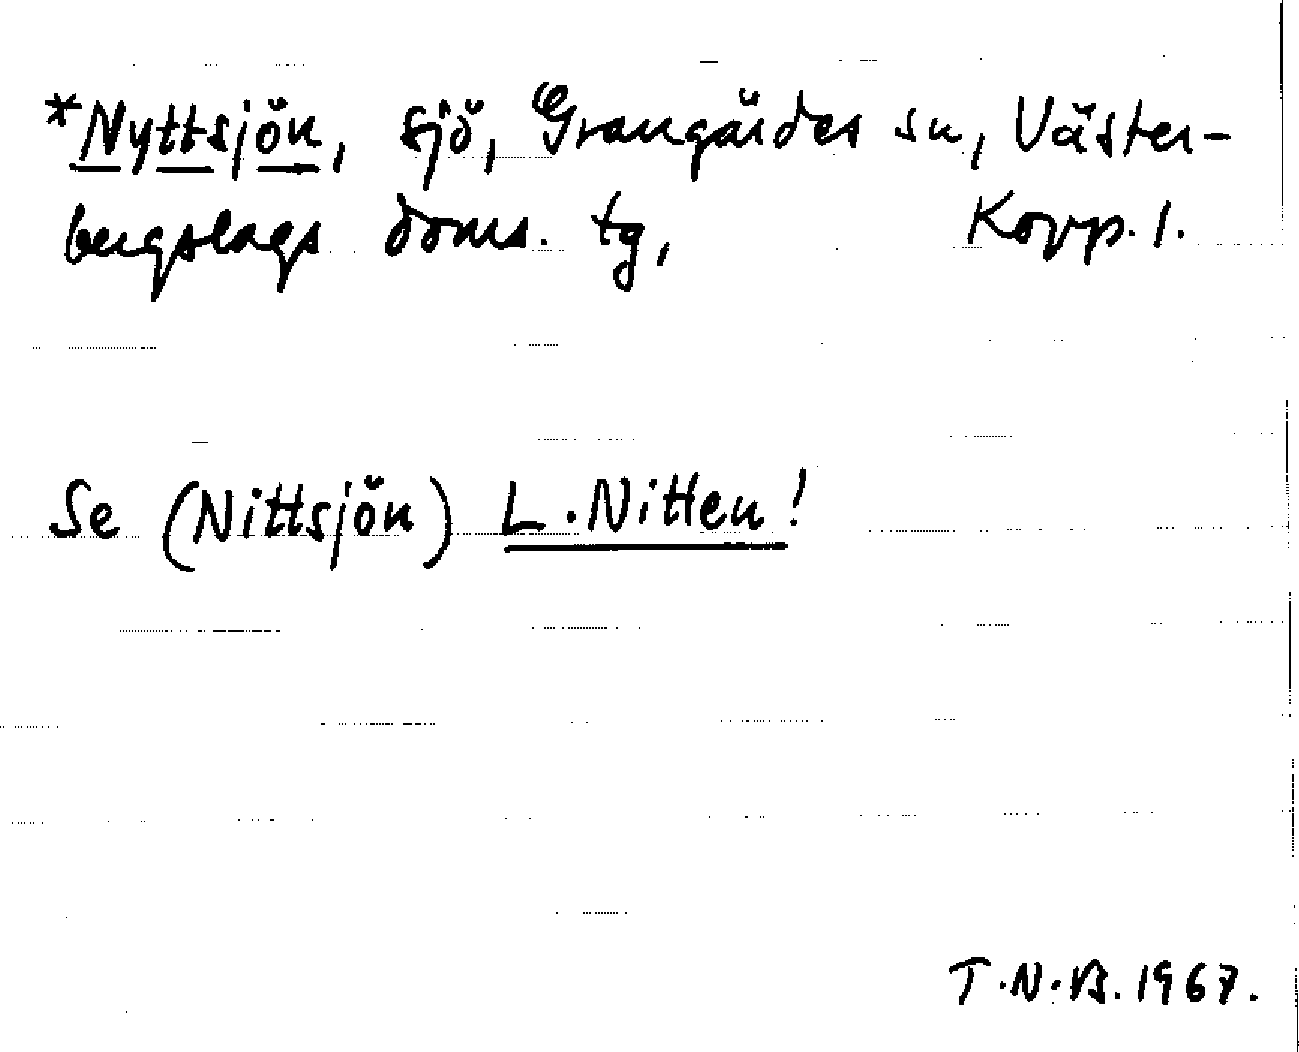 *Nyttsjön, sjö, Grangärdes sn, Väster-
bergslags doms. tg, Kopp. l.
Se (Nittsjön) L. Nitten!
T.N.B. 1967.